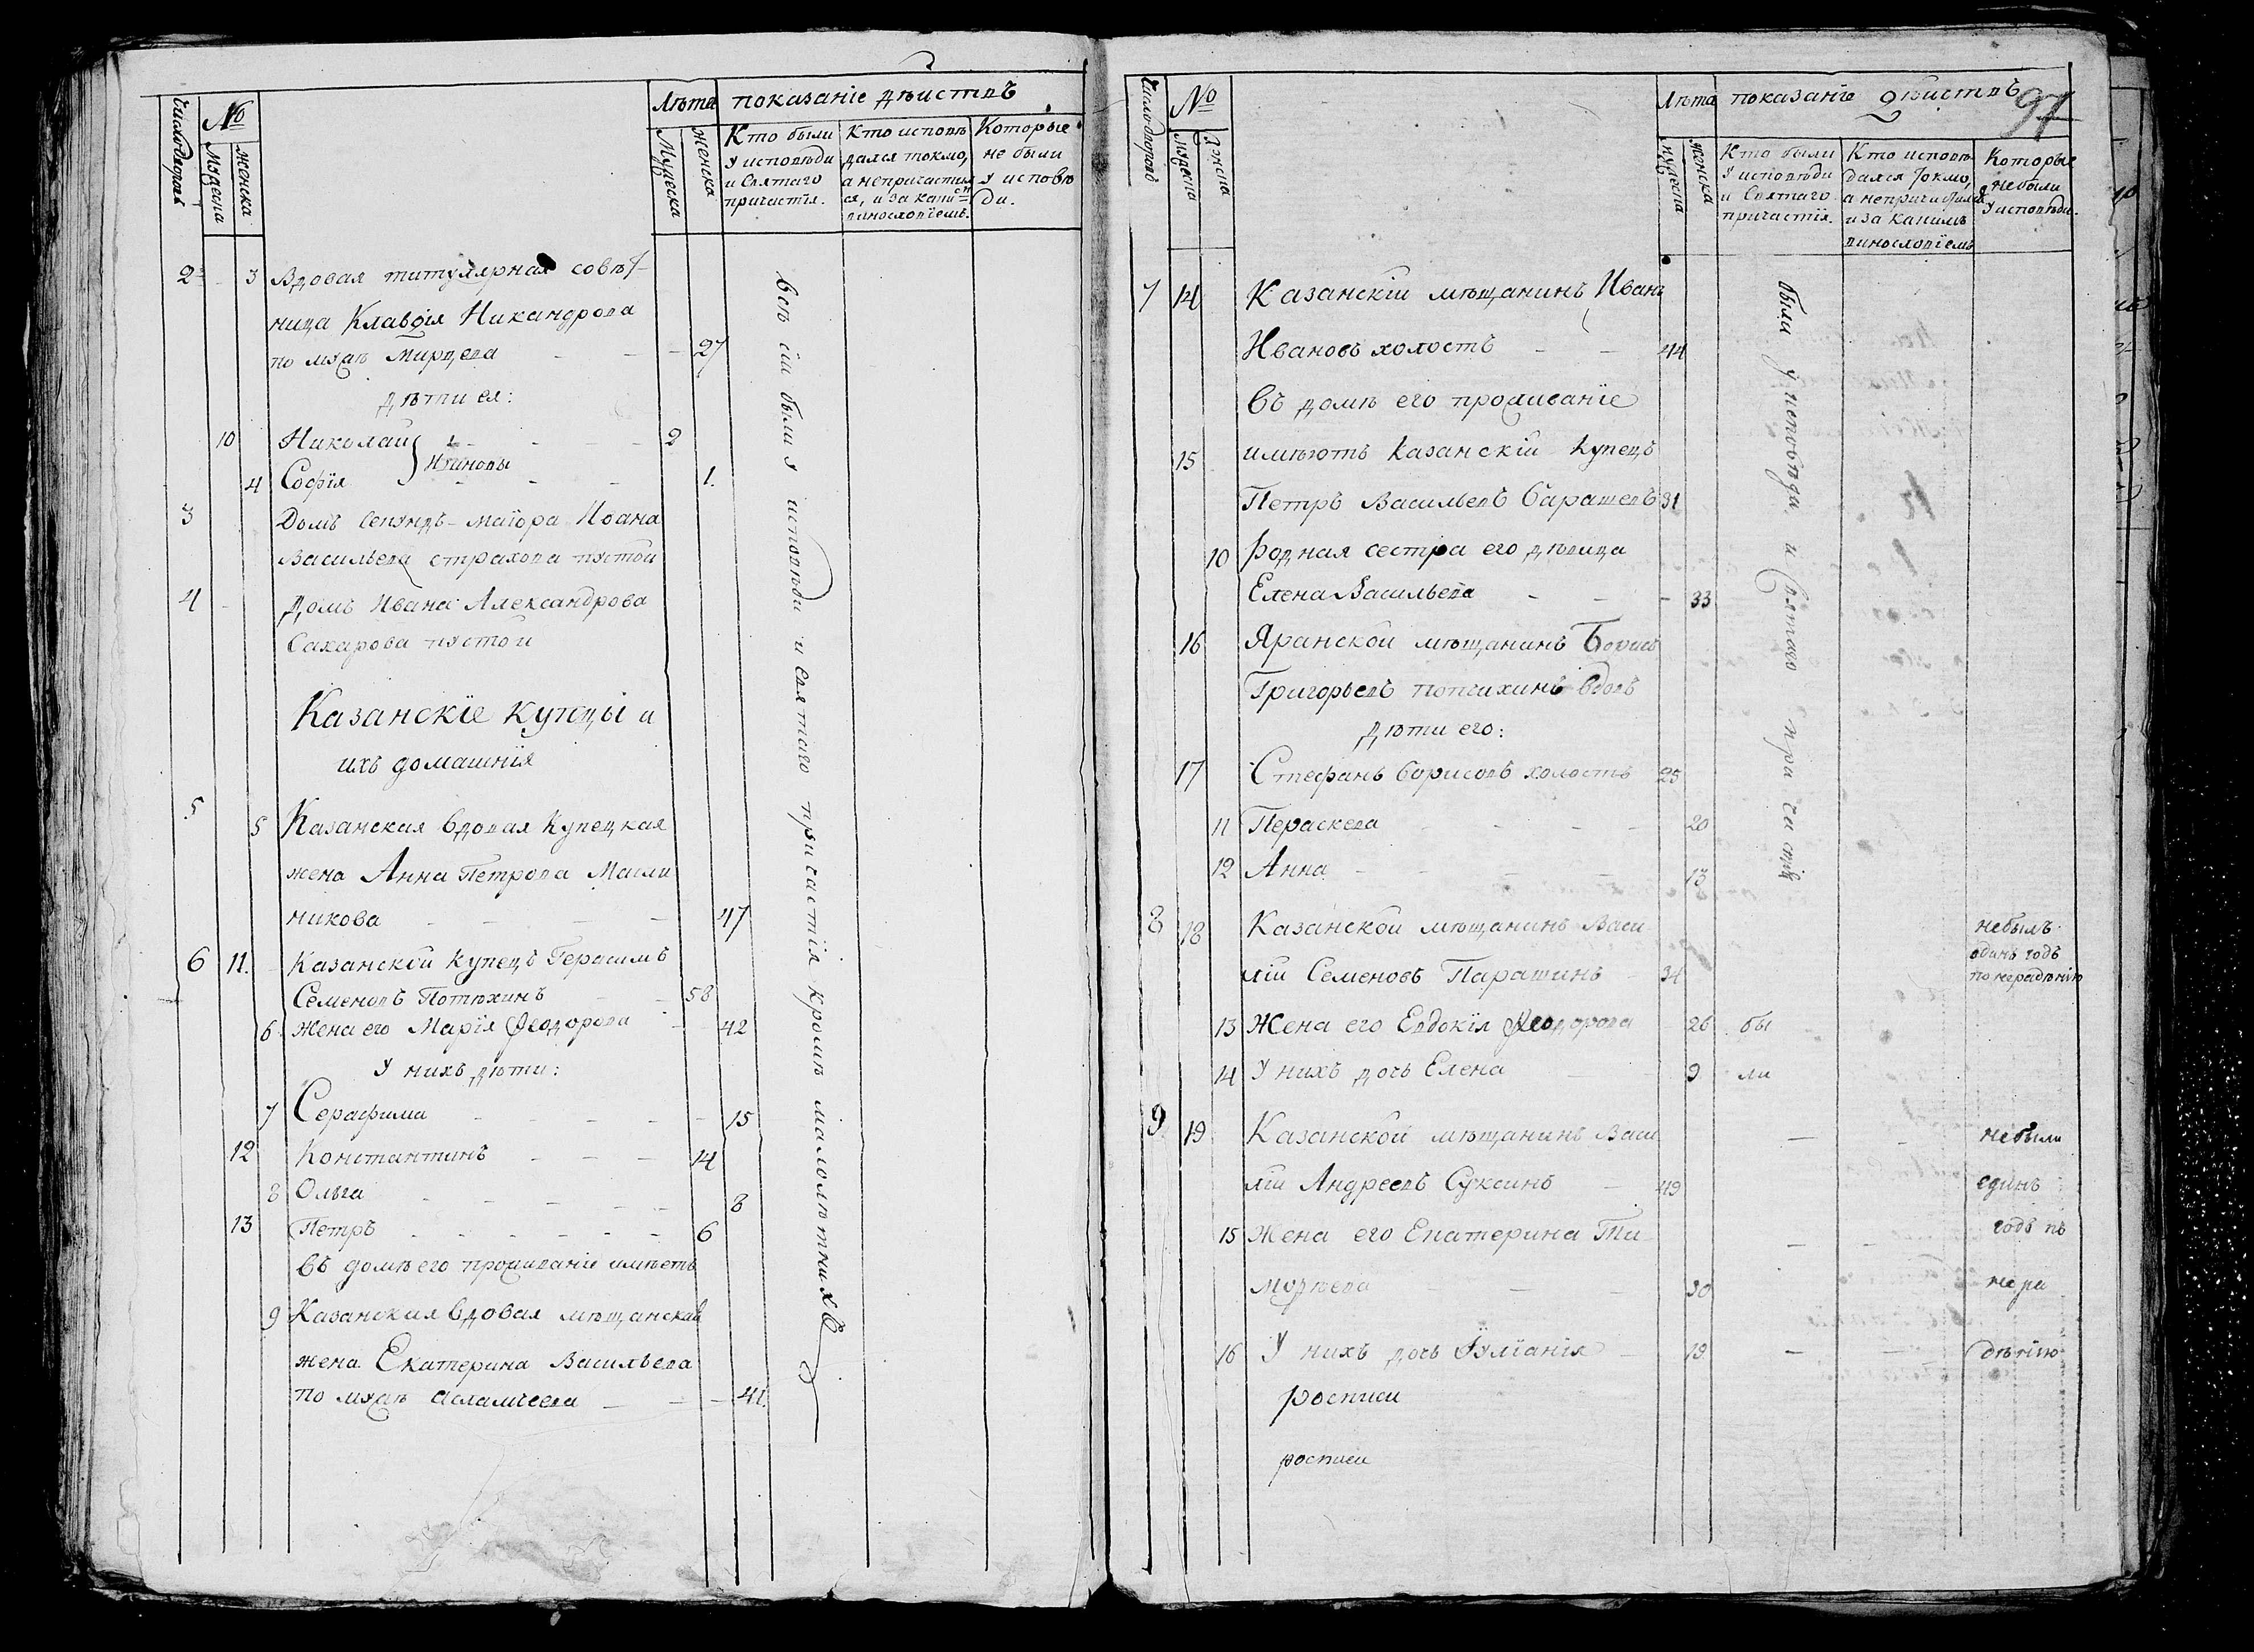 Число дворовъ
№
Мужеска
Женска
Лѣта
показаніе дѣйствъ
Мужеска
женска
Кто были у исповѣди и Святаго причастія.
Кто исповѣдался токмо, а не причастился, и за какимъ винословіемъ.
Которые не были у исповѣди.
2 3 Вдовая титулярная совѣт-
ница Клавдія Никандрова
по мужѣ 27
дѣти ея:
10 Николай 2
4 Софія 1.
3 Домъ Секундъ-маіора Иоана
Васильева Страхова пустой
4 Домъ Ивана Александрова
Сахарова пустой
Казанскіе купцы и
ихъ домашнія
5 5 Казанская вдовая купецкая
жена Анна Петрова Масли
никова 47
6 11. Казанской купецъ Герасимъ
Семеновъ Потехинъ 58
6. жена его Марія Ѳеодорова 42
У нихъ дѣти:
7 Серафима 15
12 Константинъ 14
8 Ольга 8
13 Петръ 6
Въ домѣ его проживаніе имѣетъ
9 Казанская вдовая мѣщанская
жена Екатерина Васильева
по мужѣ Асламчеева 41.
Всѣ сіи были у исповѣди и святаго причастія кромѣ малолѣтныхъ
97
Число дворовъ
№
мужеска
женска
Лѣта
показаніе дѣйствъ
мужеска
женска
Кто были у исповѣди и Святаго причастія.
Кто исповѣдался токмо, а не причастился и за какимъ винословіемъ
Которые не были у исповѣди.
7 14 Казанскій мѣщанинъ Иванъ
Ивановъ холостъ 44
Въ домѣ его проживаніе
15 имѣютъ Казанскій купецъ
Петръ Васильевъ Барашевъ 31
10 родная сестра его дѣвица
Елена Васильева 33
16 Яранской мѣщанинъ Борисъ
Григорьевъ Попчихинъ вдовъ
Дѣти его:
17 Стефанъ Борисовъ холостъ 25
11 Параскева 20
12 Анна 13
были у исповѣди и святаго причастія
8 18 Казанской мѣщанинъ Васи небылъ
одинъ годъ
лій Семеновъ Парашинъ 34 по нерадѣнію
13 Жена его Евдокія Ѳеодорова 26 бы
14 У нихъ дочь Елена 9 ли
9 19 Казанской мѣщанинъ Васи небыли
лій Андреевъ Суксинъ 49 единъ
15 Жена его Екатерина Ти годъ по
моѳеева 30 нера
16 У нихъ дочь Іуліанія 19 дѣнію
росписи
росписи